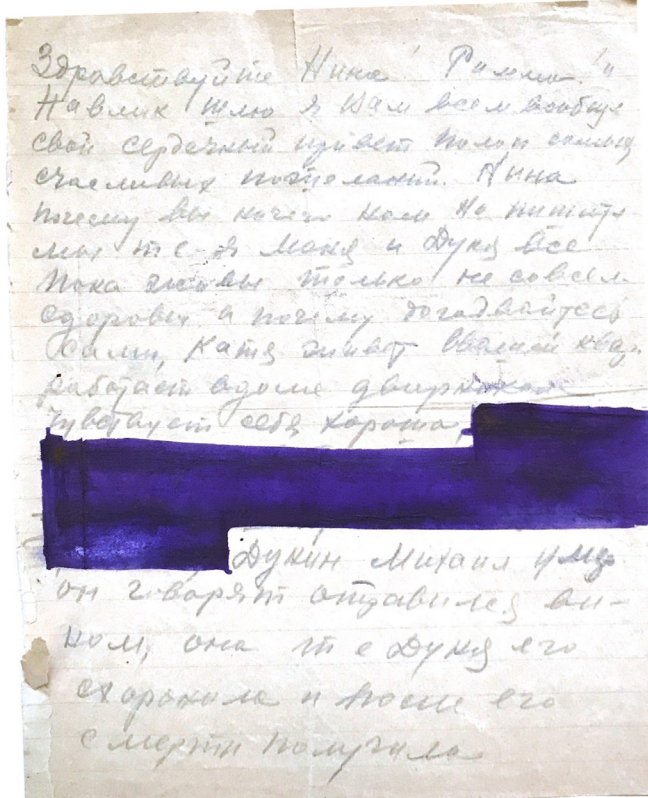 Здравствуйте Нина! Римма! и
Павлик шлю я Вам всем вообще
свой сердечный привет полон
счасливых пожеланий. Нина
почему вы ничего нам не пишите
мы т-е я Маня и Дуня все
пока живы только не совсем
здоровы, а почему догадвайтесь
сами, Катя живет
работает в доме дворником
чувствует себя хорошо,
Дунин Михаил умер
он говорят отравился ви-
ном, она т е Дуня его
схоронила и после его
смерти получила